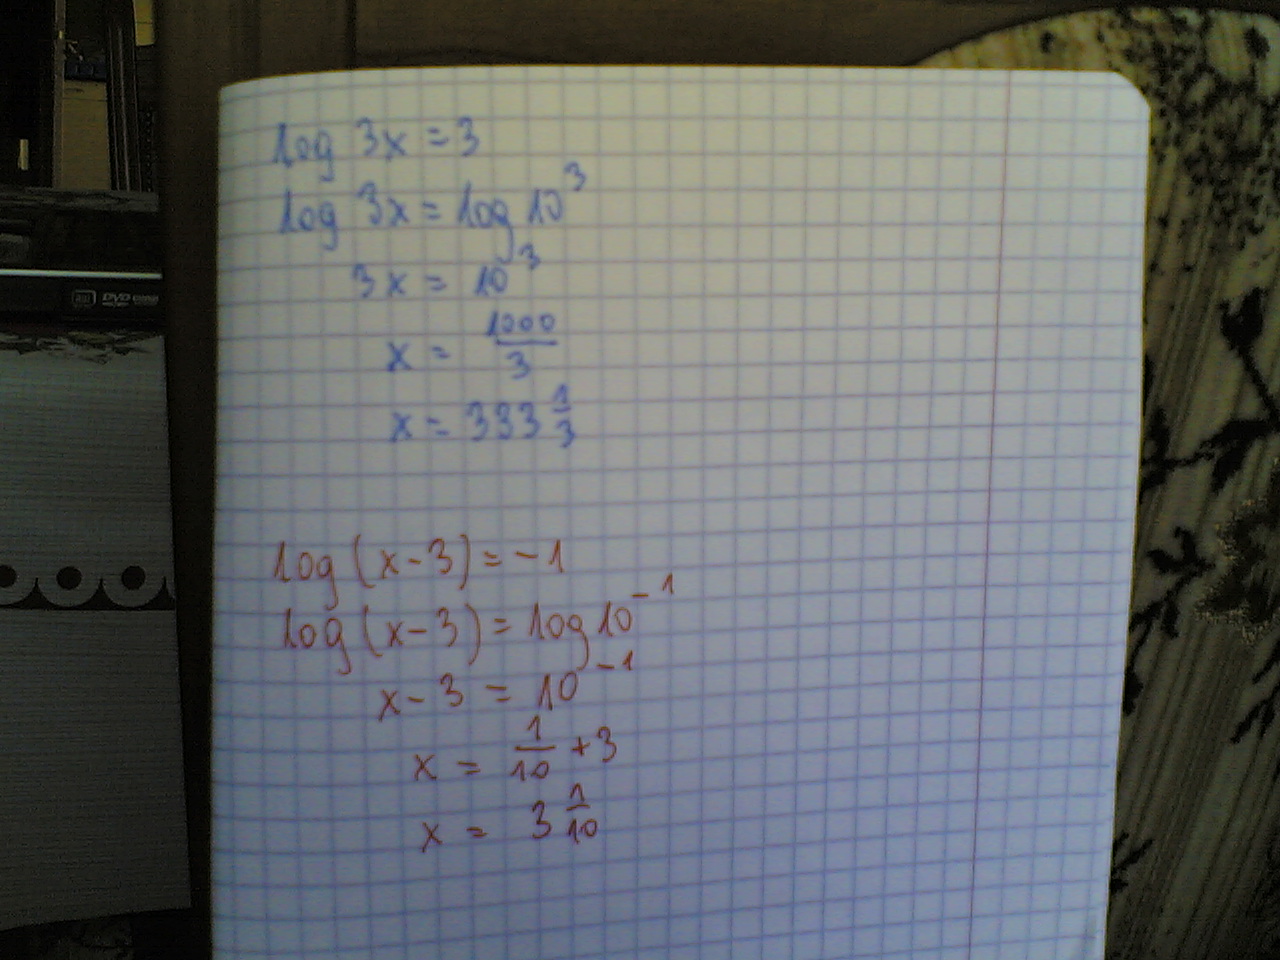 DVD
log 3x = 3
log 3x = log 10³
3x = 10³
x = 1000/3
x = 333 1/3
log (x - 3) = -1
log (x - 3) = log 10⁻¹
x - 3 = 10⁻¹
x = 1/10 + 3
x = 3 1/10